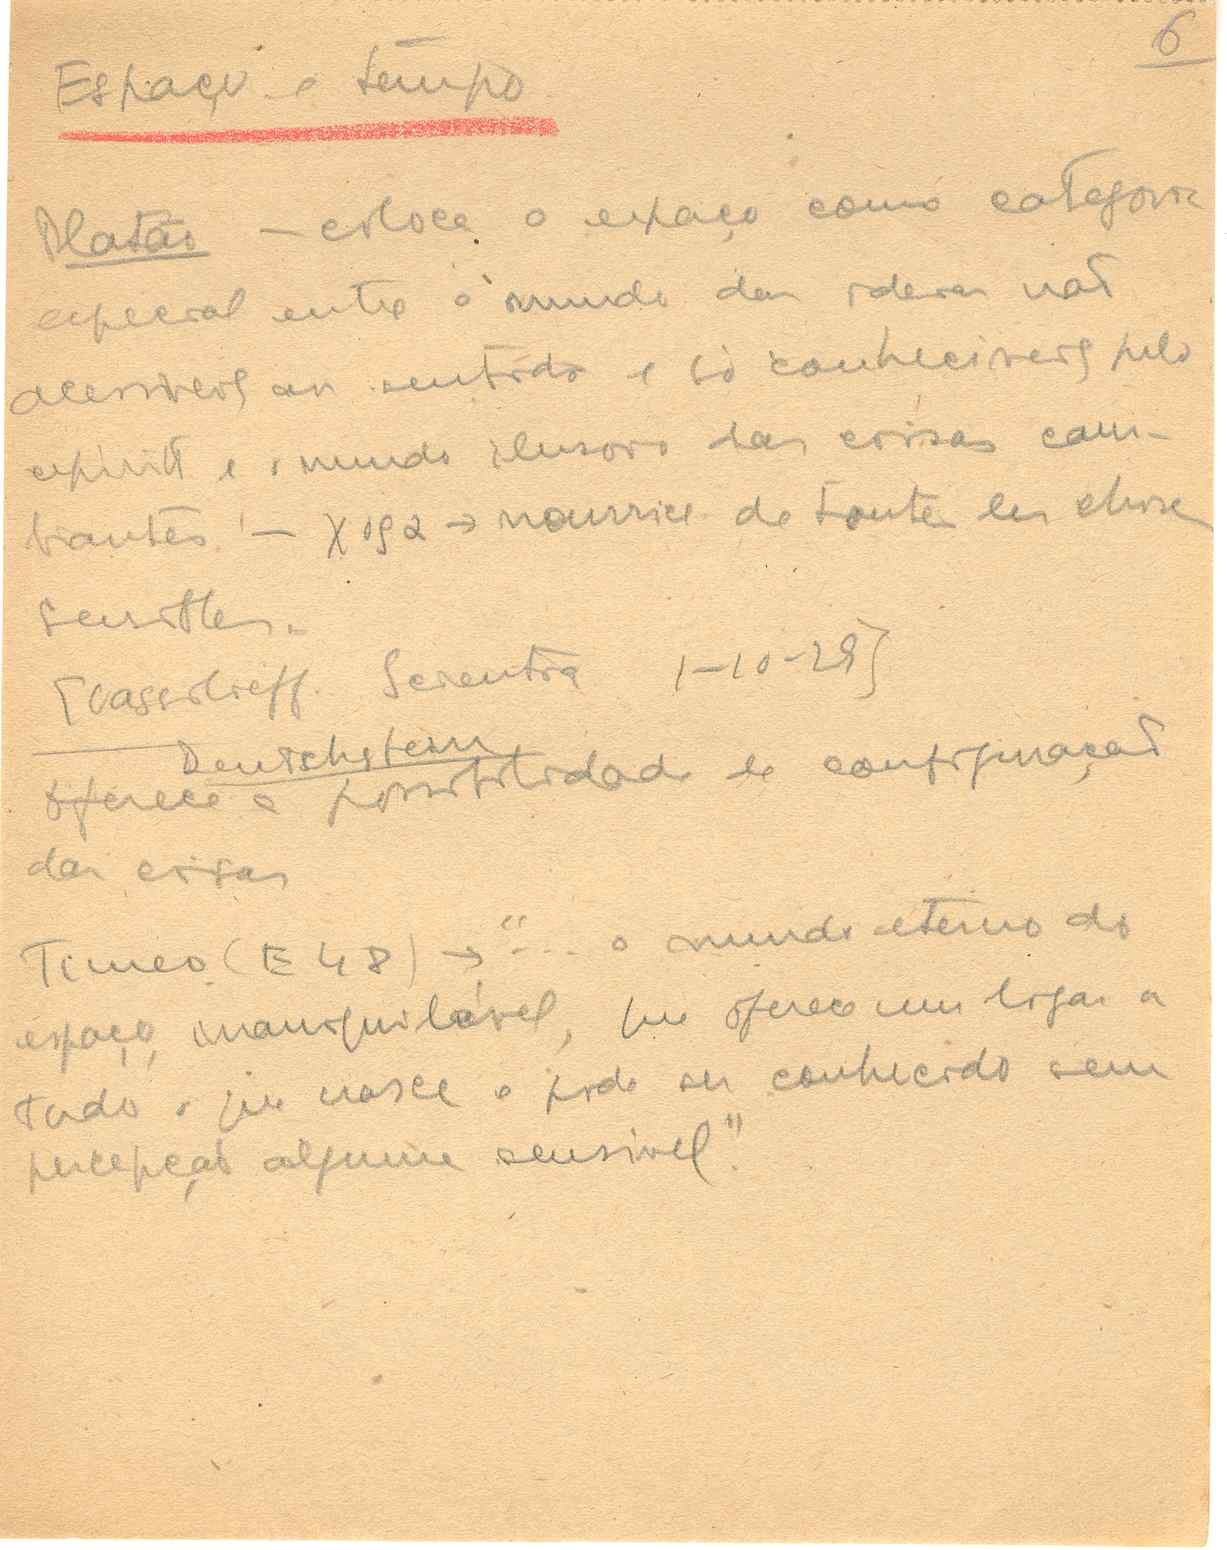 6
Espaço e tempo
Platão – coloca o espaço como categoria
especial entre o mundo das ideias não
acessíveis aos sentidos e só conhecíveis pelo
espírito e o mundo ilusorio das coisas cam-
biantes – χορα → nourrice de toutes les choses
sensibles.
[Vassilieff. Scientia 1-10-29]
Deutschstein
oferece a possibilidade de configuração
das coisas
Timeo (E 48) → "... o mundo eterno do
espaço, inaniquilável, que oferece um lugar a
tudo o que nasce e pode ser conhecido sem
percepção alguma sensivel".